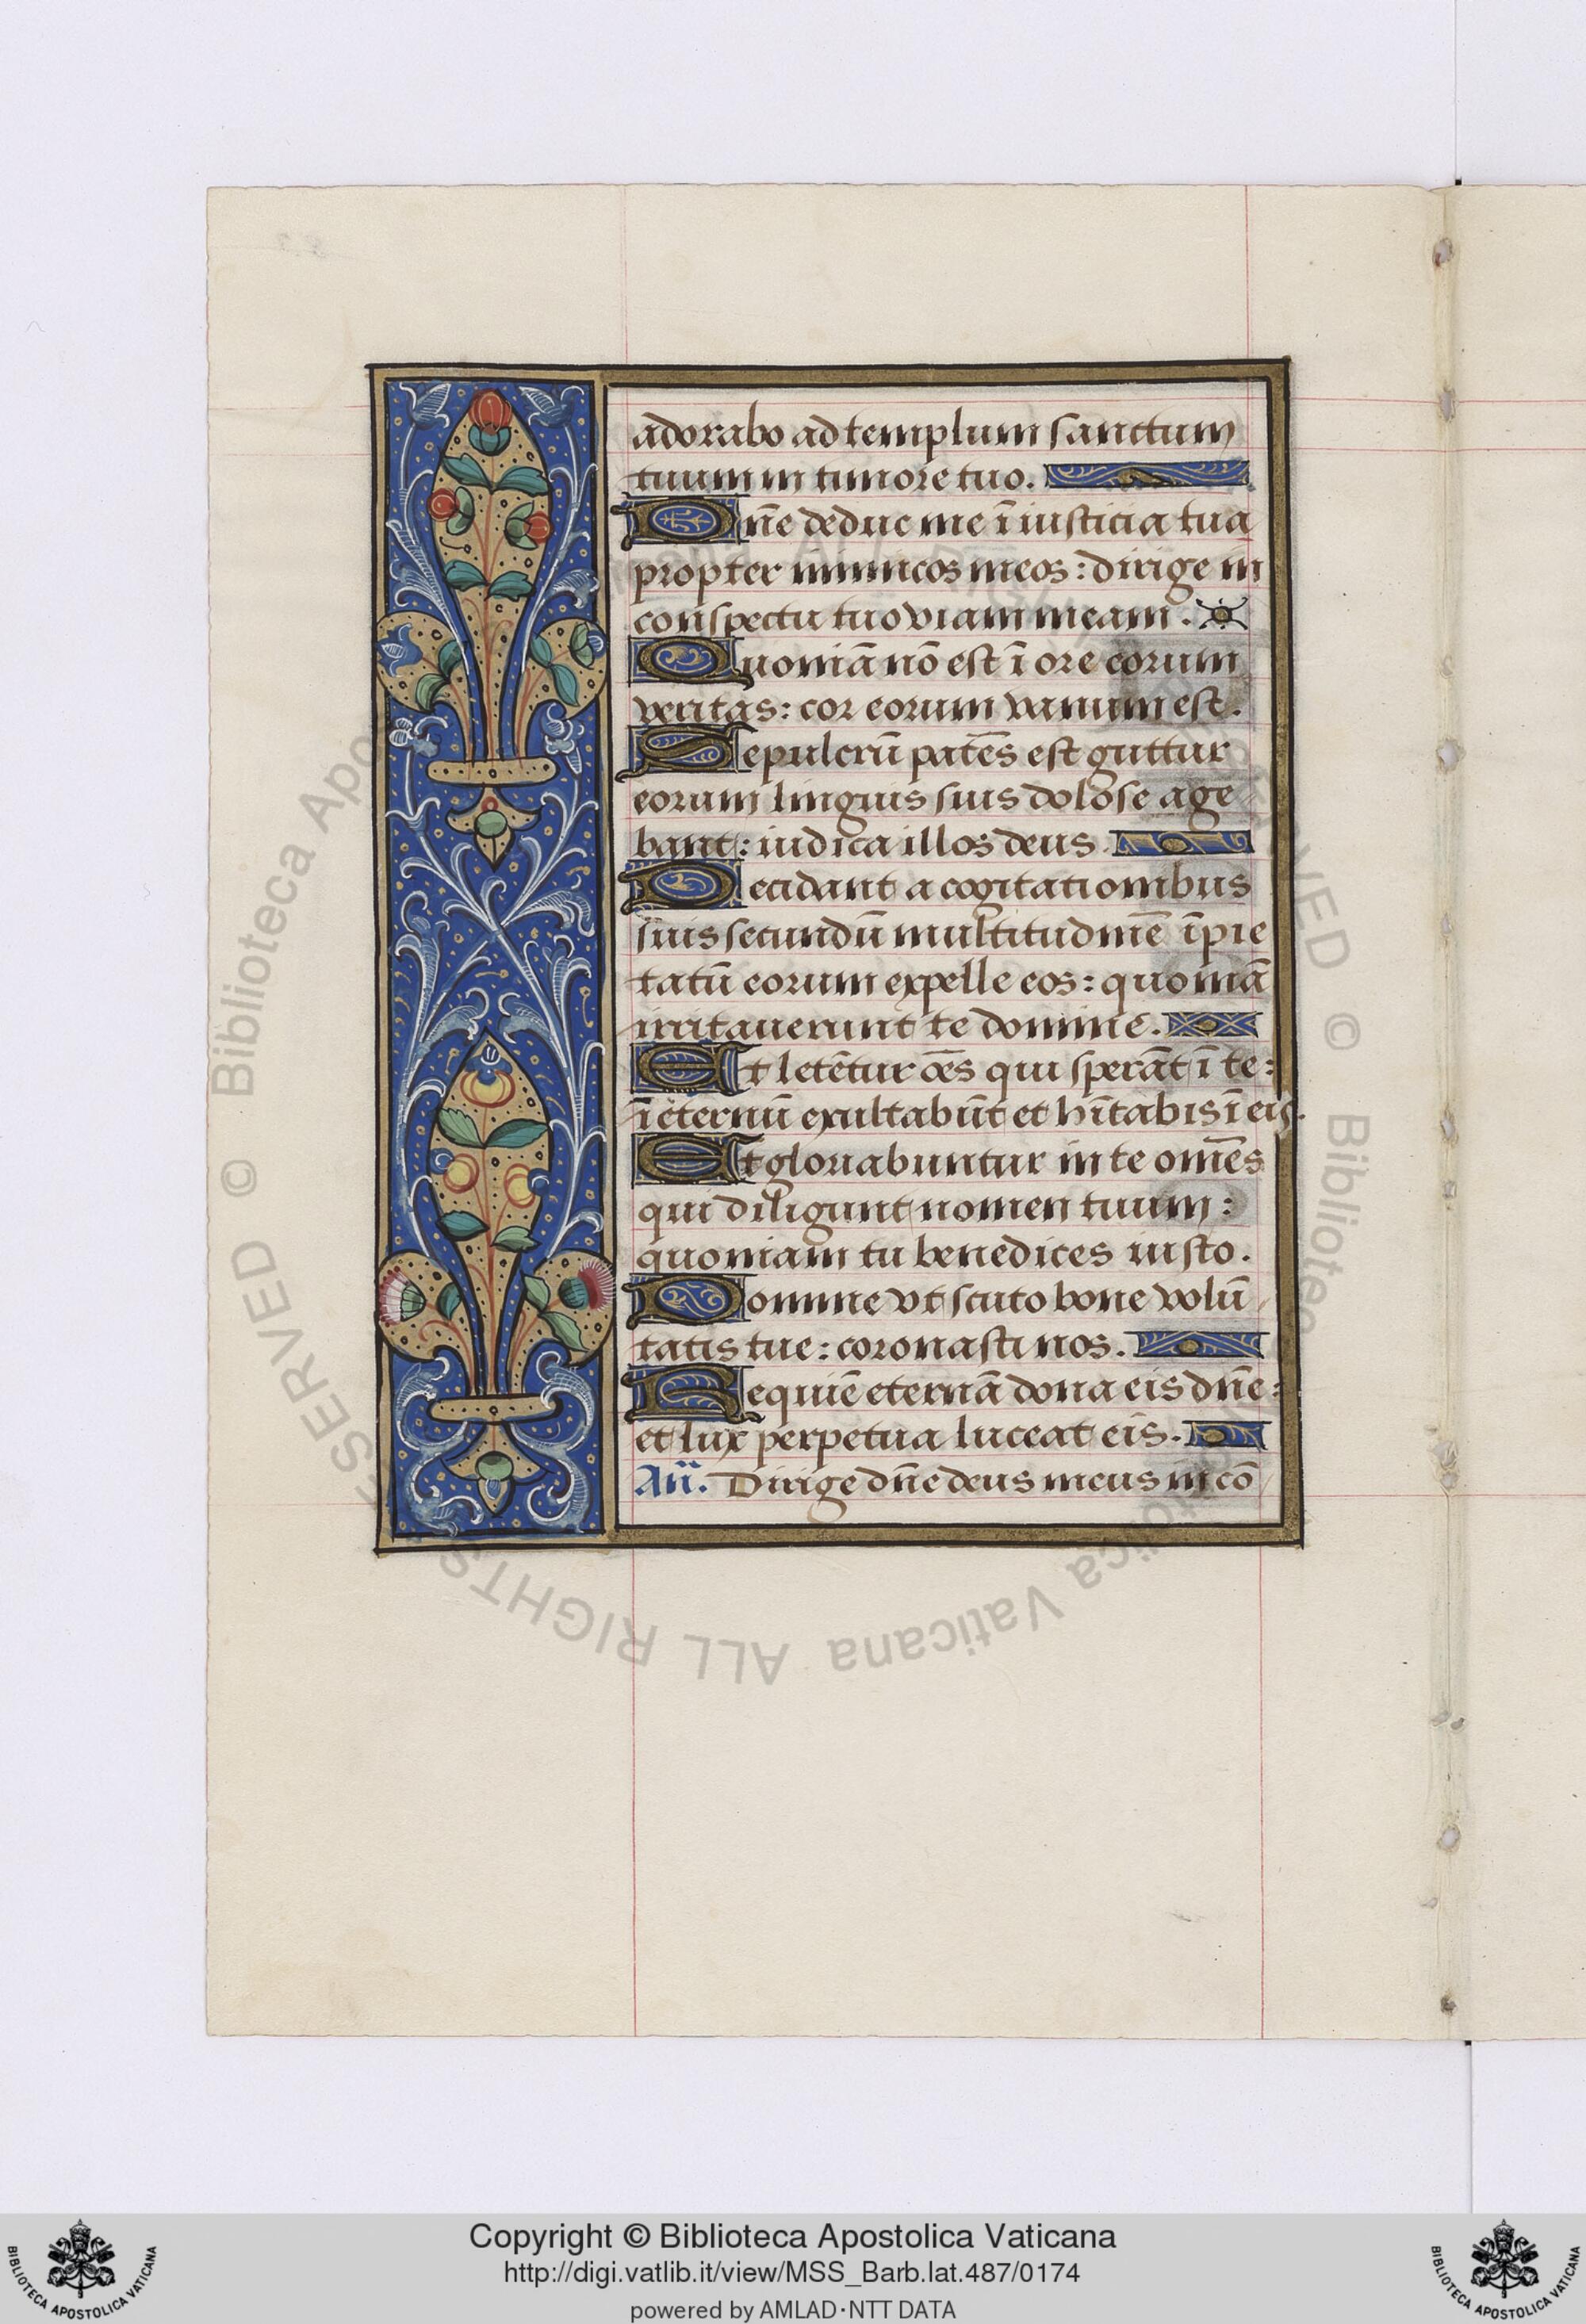 adorabo ad templum sanctum
tuum in timore tuo.
Dñe deduc me ī iusticia tua
propter inimicos meos: dirige in
conspectu tuo viam meam.
Quoniā nō est ī ore eorum
veritas: cor eorum vanum est.
Sepulcrū patēs est guttur
eorum linguis suis dolose age
bant: iudica illos deus.
Decidant a cogitationibus
suis secundū multitudinē īpie
tatū eorum expelle eos: quoniā
irritaverunt te domine.
Et letētur oēs qui sperāt ī te:
ī eternū exultabūt et hītabis ī eis.
Et gloriabuntur in te omēs
qui diligunt nomen tuum:
quoniam tu benedices iusto.
Domine vt scuto bone volū
tatis tue: coronasti nos.
Requiē eternā dona eis dñe:
et lux perpetua luceat eis.
Añ. Dirige dñe deus meus in cō
© Biblioteca Apostolica Vaticana ALL RIGHTS RESERVED
Copyright © Biblioteca Apostolica Vaticana
http://digi.vatlib.it/view/MSS_Barb.lat.487/0174
powered by AMLAD·NTT DATA
BIBLIOTECA APOSTOLICA VATICANA
BIBLIOTECA APOSTOLICA VATICANA